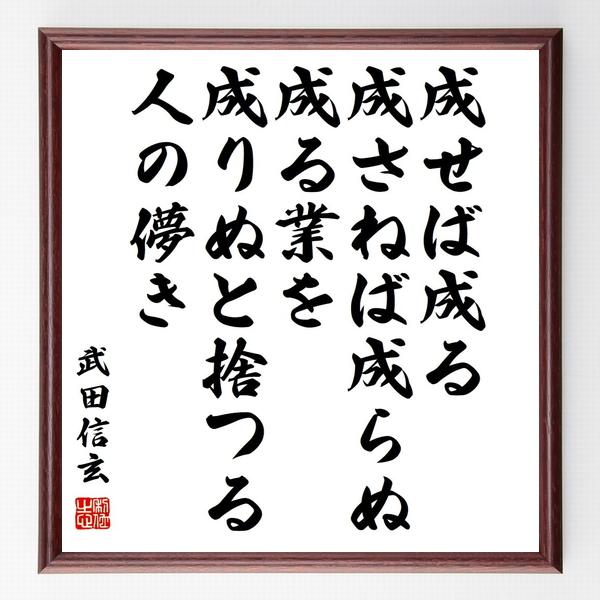 成せば成る
成さねば成らぬ
成る業を
成りぬと捨つる
人の儚き
武田信玄